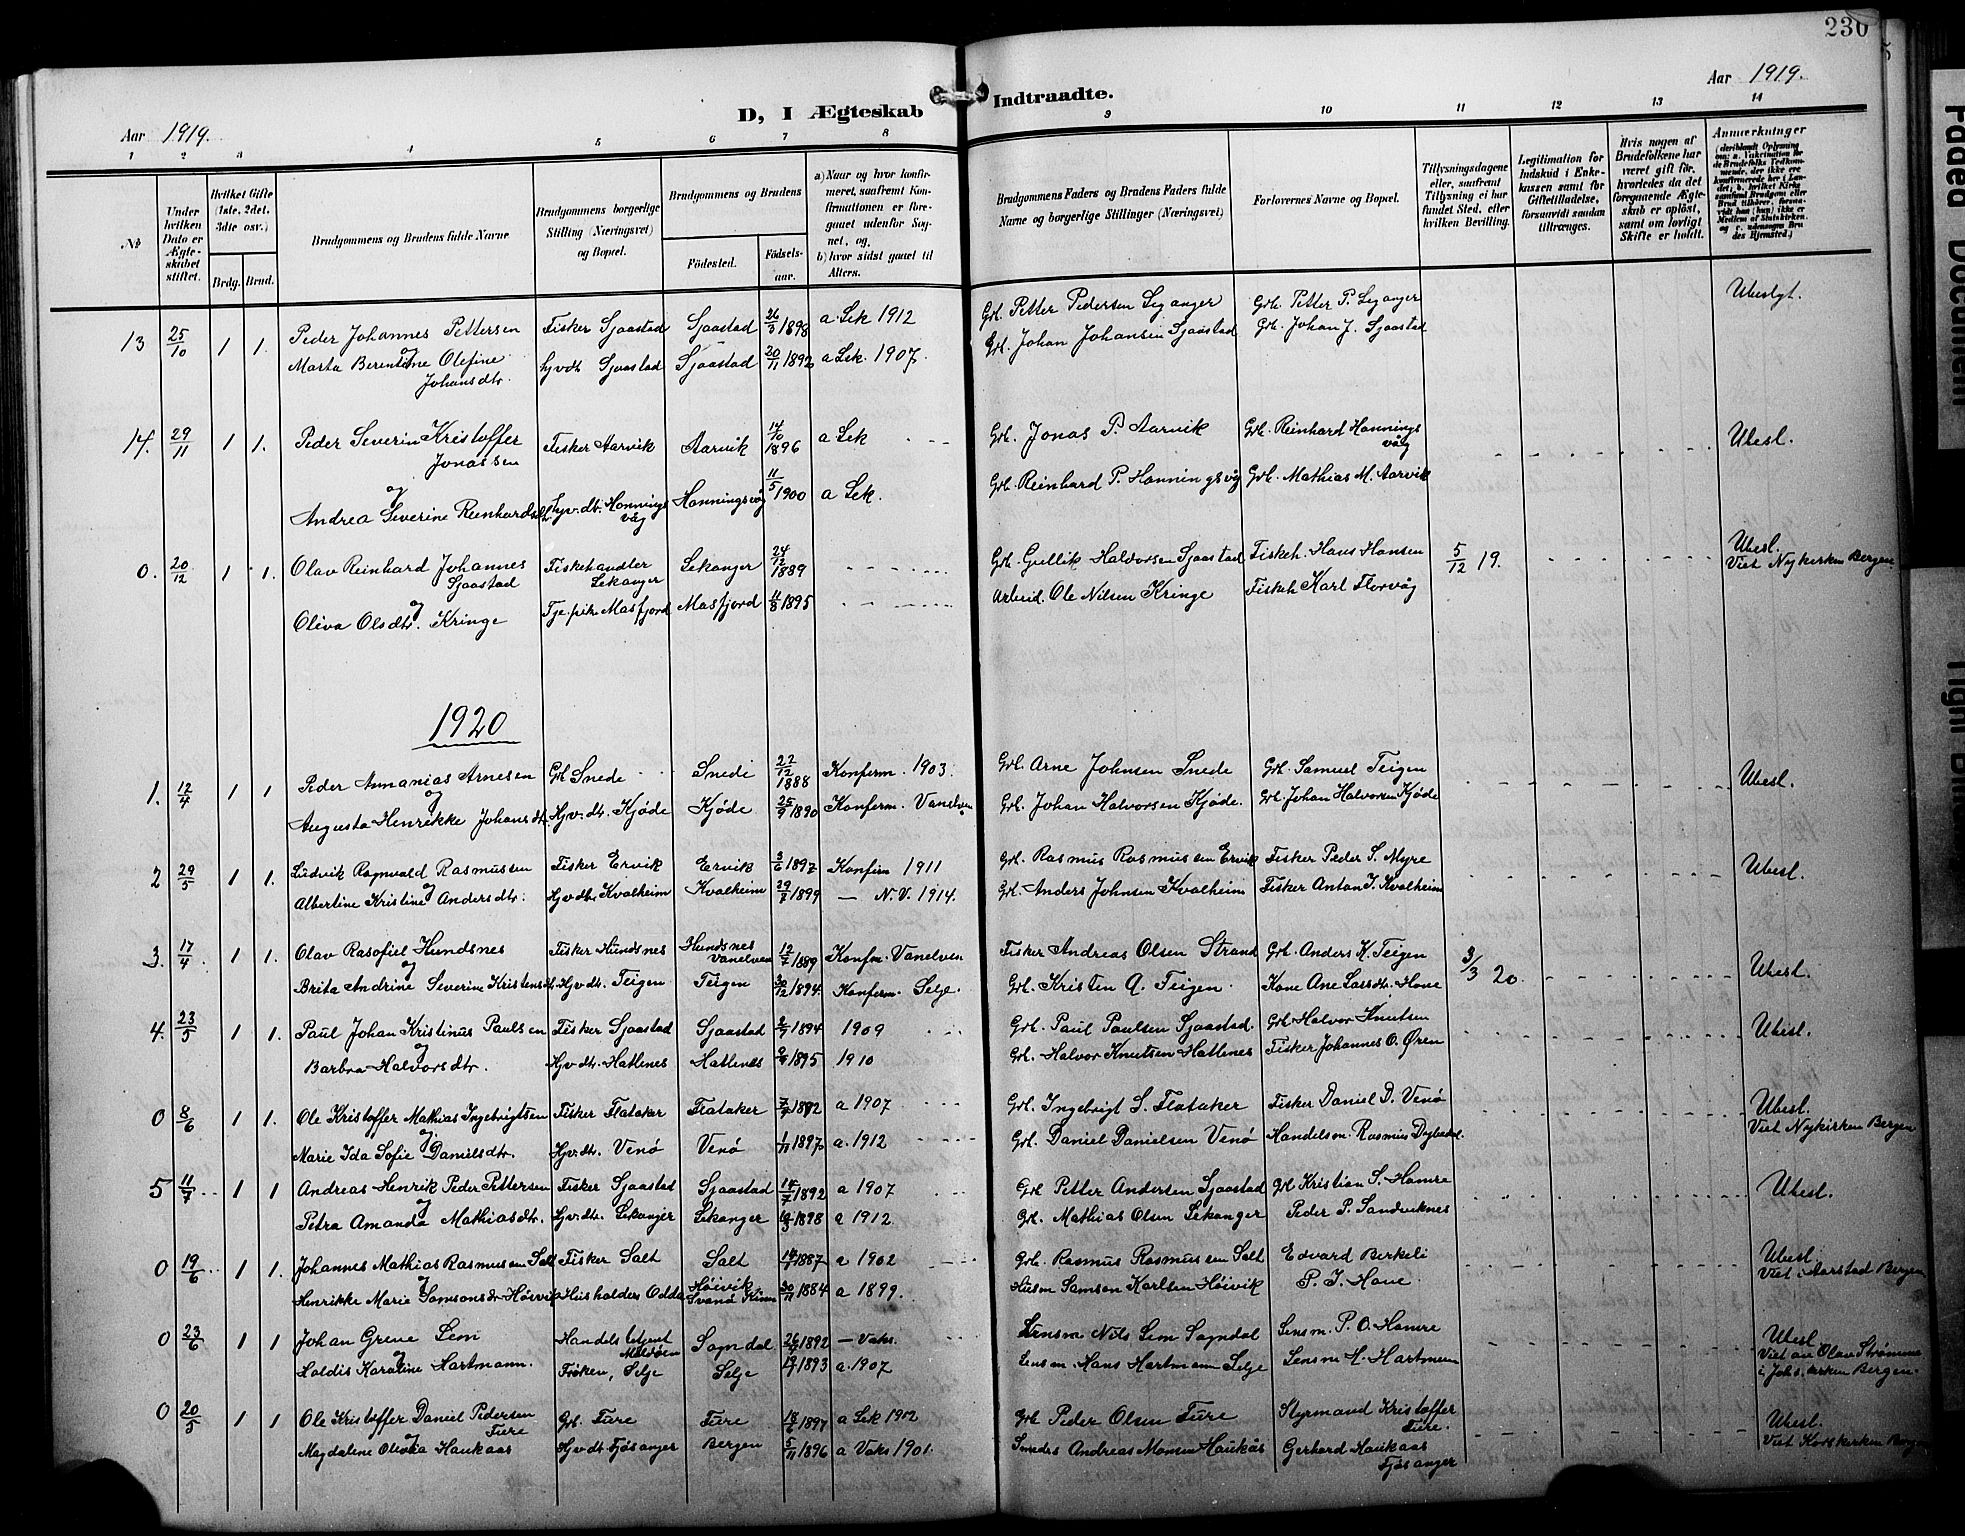 230
Aar 1919.
Aar 1919.
D, I Ægteskab Indtraadte.
1 2 3 4 5 6 7 8 9 10 11 12 13 14
No
Under hvilken Dato er Ægteskabet stiftet.
Hvilket Gifte (1ste, 2det, 3dte osv.)
Brdg. Brud.
Brudgommens og Brudens fulde Navne
Brudgommens borgerlige Stilling (Næringsvei) og Bopæl.
Brudgommens og Brudens
Fødested. Fødselsaar.
a) Naar og hvor konfirmeret, saafremt Konfirmationen er foregaaet udenfor Sognet, og,
b) hvor sidst gaaet til Alters.
Brudgommens Faders og Brudens Faders fulde Navne og borgerlige Stillinger (Næringsvei)
Forlovernes Navne og Bopæl.
Tillysningsdagene eller, saafremt Tillysning ei har fundet Sted, efter hvilken Bevilling.
Legitimation for Indskud i Enkekassen samt for Giftetilladelse, forsaavidt saadan tiltrænges.
Hvis nogen af Brudefolkene har været gift før, hvorledes da det foregaaende Ægteskab er opløst, samt om lovligt Skifte er holdt.
Anmærkninger
13 25/10 1 1. Peder Johannes Pettersen Fisker Sjaastad Sjaastad 26/3 1898 a. Sek 1912 Grb. Petter Pedersen Leganger Grb. Petter P. Leganger Ubeslgt.
og
Marta Berentine Olefine Johansdtr. hjvdt Sjaastad Sjaastad 20/11 1892 a Sek. 1907. Grb. Johan Johansen Sjaastad Grb. Johan J. Sjaastad
14. 29/11 1 1. Peder Severin Kristoffer Jonassen Fisker Aarvik Aarvik 14/10 1896 a Sek Grb. Jonas P. Aarvik Grb. Reinhard Honningsvåg Ubesl.
og
Andrea Severine Reinhardsdtr hjv.dt. Honningsvåg Honningsvåg 11/5 1900 a Sek. Grb. Reinhard P. Honningsvåg Grb. Mathias M. Aarvik
0. 20/12 1 1. Olav Reinhard Johannes Sjaastad Fiskehandler Sekanger Sekanger 24/12 1889 Grb. Gullik Halvorsen Sjaastad Fiskeh. Hans Hansen 5/12 19. Ubesl. Viet Nykirken Bergen
og
Oliva Olsdtr. Kringe Tje.pike Masfjord Masfjord 11/8 1895 Arbeid. Ole Nilsen Kringe Fiskeh Karl Florvåg
1920
1. 12/4 1 1 Peder Annanias Arnesen Grb Snede Snede 22/12 1888 Konferm. 1903. Grb. Arne Johnsen Snede Grb. Samuel Teigen Ubesl.
og
Augusta Henrikke Johansdtr. Hjv.dtr. Kjøde Kjøde 25/9 1890 Konferm. Vanelven Grb. Johan Halvorsen Kjøde. Grb. Johan Halvorsen Kjøde
2 29/5 1 1. Ludvik Ragnvald Rasmussen Fisker Ervik Ervik 3/6 1897 Konfirm 1911 Grb. Rasmus Rasmussen Ervik Fisker Peder S. Myre Ubesl.
og
Albertine Kristine Andersdtr. Hjvdtr Kvalheim Kvalheim 29/7 1899 — N.V. 1914. Grb. Anders Johnsen Kvalheim Fisker Anton J. Kvalheim
3. 17/4 1 1. Olav Rasofiel Hundsnes Fisker Hundsnes Hundsnes Vanelven 12/7 1889 Konfm. Vanelven Fisker Andreas Olsen Strand Grb. Anders K. Teigen 3/3 20. Ubesl.
og
Brita Andrine Severine Kristensdtr Hjvdtr. Teigen Teigen 30/12 1894. Konferm. Selje. Grb. Kristen A. Teigen. Kone Ane Larsdtr. Hone
4. 23/5 1 1. Paul Johan Kristinus Paulsen Fisker Sjaastad Sjaastad 2/7 1894 1909 Grb. Paul Paulsen Sjaastad. Grb Halvor Knutsen Ubesl.
og
Barbra Halvorsdtr. Hjvdtr. Hatlenes Hatlenes 1895 1910 Grb. Halvor Knutsen Hatlenes Fisker Johannes O. Øren
0 8/6 1 1. Ole Kristoffer Mathias Ingebrigtsen Fisker Flataker Flataker 1892 a 1907 Grb. Ingebrigt S. Flataker Fisker Daniel D. Venø Ubesl. Viet Nykirken Bergen
og
Marie Ida Sofie Danielsdtr. Hjv.dtr. Venø Venø 1/11 1897 a. 1912 Grb. Daniel Danielsen Venø Handelsm. Rasmus
5 11/7 1 1 Andreas Henrik Peder Pettersen Fisker Sjaastad Sjaastad 14/7 1892 a 1907 Grb Petter Andersen Sjaastad Grb Kristian S. Hamre Ubesl.
og
Petra Amanda Mathiasdtr. Hjv.dtr. Sekanger Sekanger 1898 a 1912 Grb. Mathias Olsen Sekanger Peder P. Sandviknes
0 19/6 1 1. Johannes Mathias Rasmussen Salt Fisker Salt Salt 1887 a 1902 Grb. Rasmus Rasmussen Salt Edvard Berkeli Ubesl. Viet i Aarstad Bergen
og
Henrikke Marie Samsonsdtr Høivik Husholders Odda Høivik Svanø Kinn 30/11 1884 a 1899. Husm Samson Karlsen Høivik P. J. Hane
0 23/6 1 1 Johan Greve Lem Handels Agent Måløen Sogndal 26 1892 — Vaks. Lensm Nils Lem Sogndal Lensm. P. O. Hamre Ubesl Viet av Olav Strømme i Johs.kirken Bergen.
og
Haldis Karoline Hartmann. Frøken, Selje Selje 1893 a. 1907 Lensm. Hans Hartmann Selje Lensm H. Hartmann
0 20/5 1 1 Ole Kristoffer Daniel Pedersen Fure Grb. Fure Fure 18/6 1897 a Sek 1912 Grb Peder Olsen Fure Styrmand Kristoffer Fure. Ubesl. Viet Korskirken Bergen
og
Magdalene Olivia Haukaas Hjvdt Fjøsanger Bergen 5/11 1896 a Vaks 1901. Smedes Andreas Monsen Haukås Gerhard Haukaas Fjøsanger